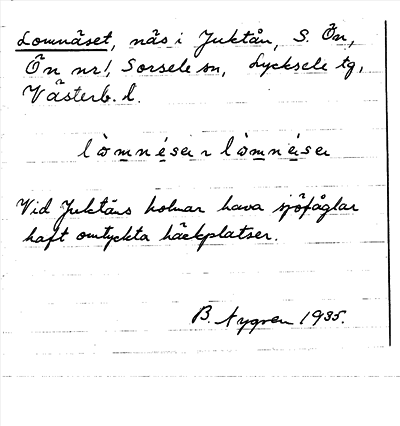 Lomnäset, näs i Juktån, S. Ön,
Ön nr 1, Sorsele sn, Lycksele tg,
Västerb. l.
Vid Juktåns holmar hava sjöfåglar
haft omtyckta häckplatser.
B. Nygren 1935.